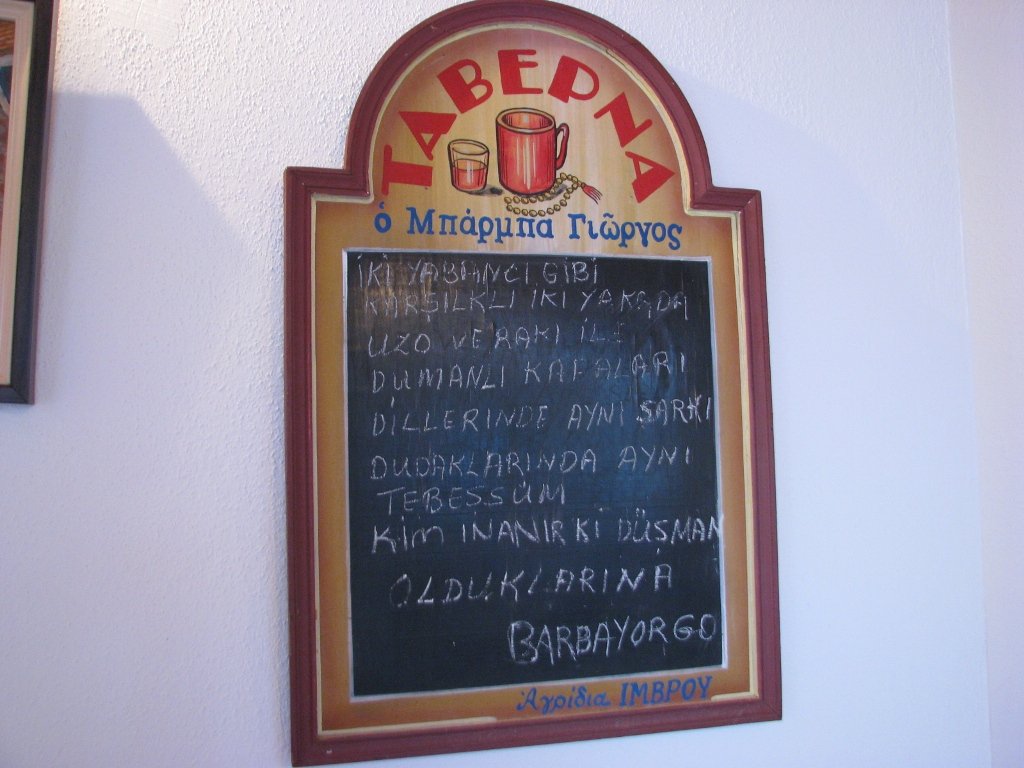 ΤΑΒΕΡΝΑ
ὁ Μπάρμπα Γιῶργος
İKİ YABANCI GİBİ
KARŞILKLI İKİ YAKADA
UZO VE RAKI İLE
DUMANLI KAFALARI
DİLLERINDE AYNI ŞARKI
DUDAKLARINDA AYNI
TEBESSÜM
KİM INANIR Kİ DÜŞMAN
OLDUKLARINA
BARBAYORGO
Ἀγρίδια ΙΜΒΡΟΥ